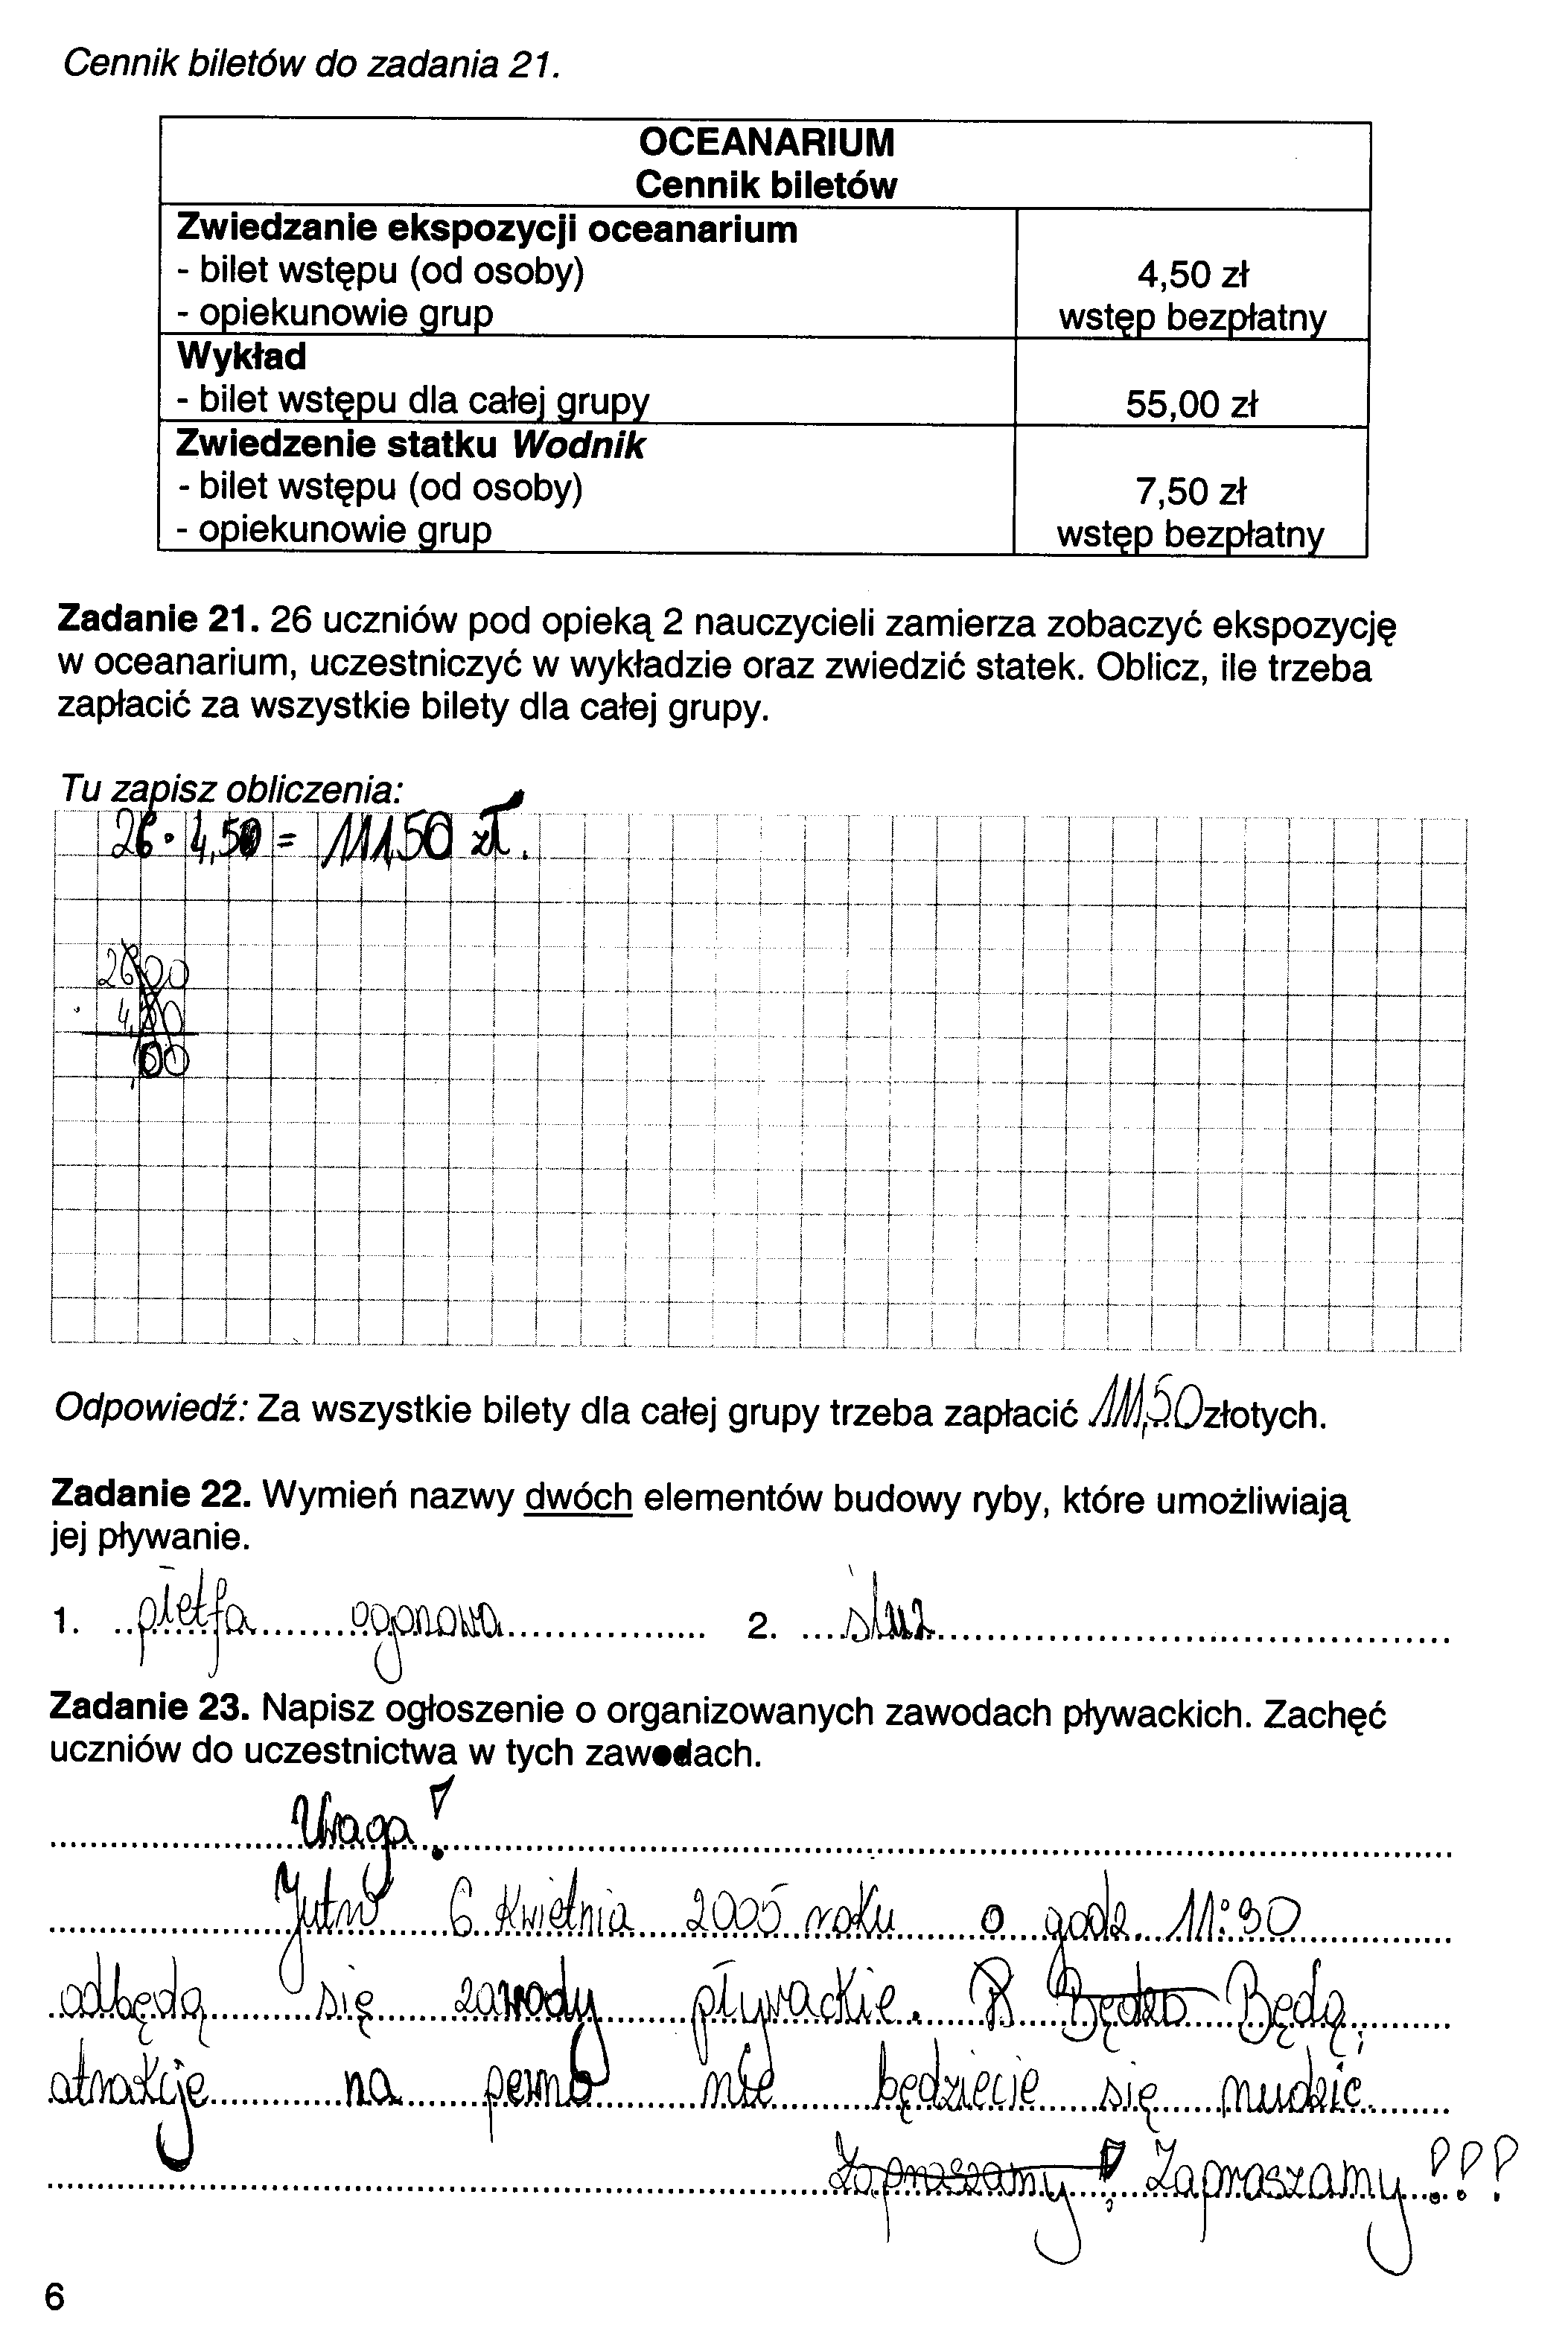 Cennik biletów do zadania 21.
OCEANARIUM
Cennik biletów
Zwiedzanie ekspozycji oceanarium
- bilet wstępu (od osoby) 4,50 zł
- opiekunowie grup wstęp bezpłatny
Wykład
- bilet wstępu dla całej grupy 55,00 zł
Zwiedzenie statku Wodnik
- bilet wstępu (od osoby) 7,50 zł
- opiekunowie grup wstęp bezpłatny
Zadanie 21. 26 uczniów pod opieką 2 nauczycieli zamierza zobaczyć ekspozycję
w oceanarium, uczestniczyć w wykładzie oraz zwiedzić statek. Oblicz, ile trzeba
zapłacić za wszystkie bilety dla całej grupy.
Tu zapisz obliczenia:
26 · 4,50 = 111,50 zł.
Odpowiedź: Za wszystkie bilety dla całej grupy trzeba zapłacić 111,50 złotych.
Zadanie 22. Wymień nazwy dwóch elementów budowy ryby, które umożliwiają
jej pływanie.
1. płetfa ogonowa 2. śluz
Zadanie 23. Napisz ogłoszenie o organizowanych zawodach pływackich. Zachęć
uczniów do uczestnictwa w tych zawodach.
Uwaga!
Jutro 6 kwietnia 2005 roku o godz. 11:30
odbędą się zawody pływackie. Będą,
atrakcje na pewno nie będziecie się nudzić.
Zapraszamy! Zapraszamy!!!
6